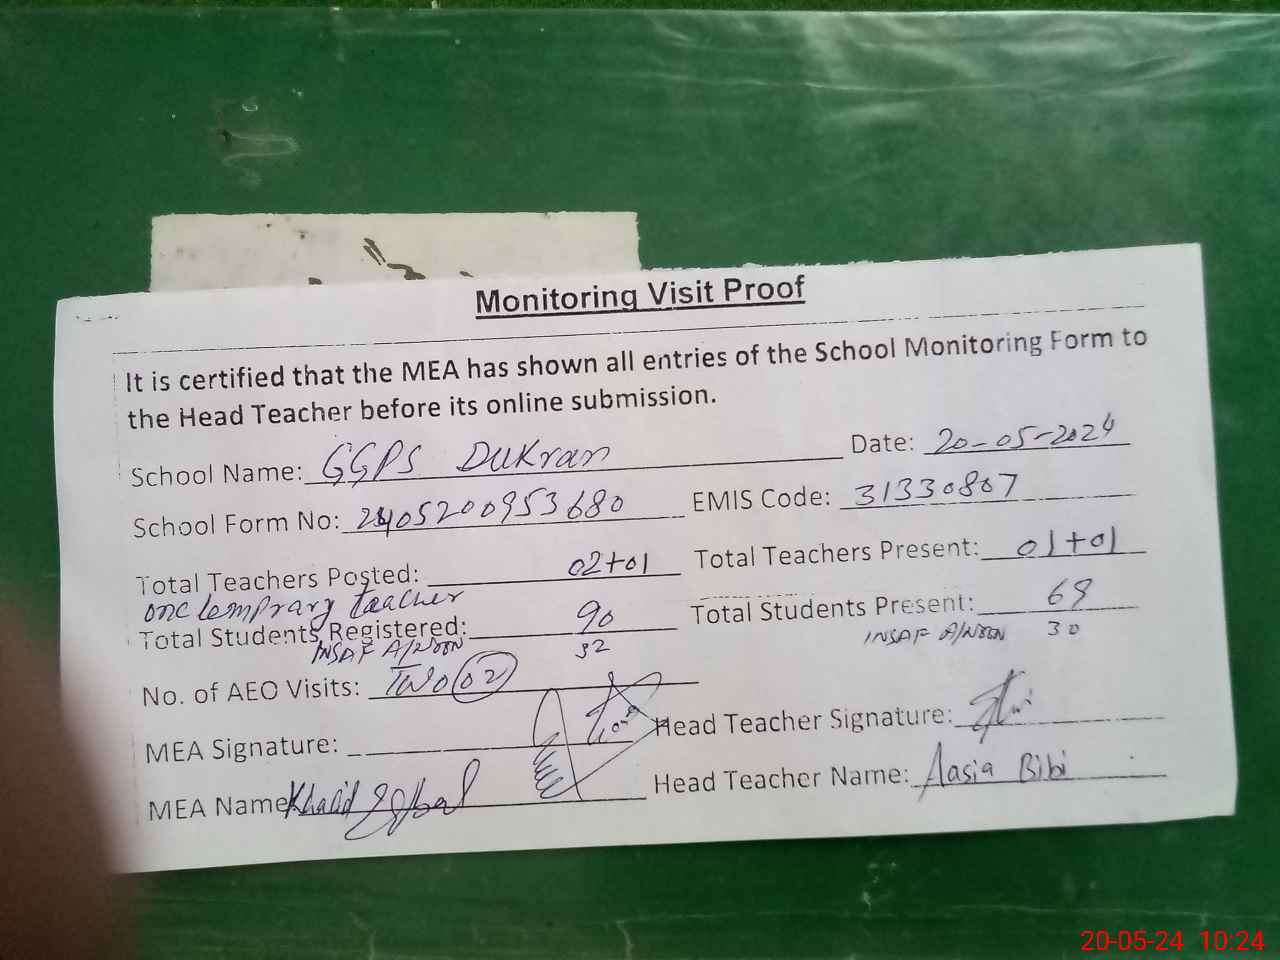 Monitoring Visit Proof
It is certified that the MEA has shown all entries of the School Monitoring Form to
the Head Teacher before its online submission.
School Name: GGPS Dukran Date: 20-05-2024
School Form No: 2405200953680 EMIS Code: 31330807
Total Teachers Posted: 02+01 Total Teachers Present: 01+01
one temprary teacher
Total Students Registered: 90 Total Students Present: 69
INSAF A/NOON 32 INSAF A/NOON 30
No. of AEO Visits: Two (02)
MEA Signature: Head Teacher Signature:
MEA Name Khalid Iqbal Head Teacher Name: Aasia Bibi
20-05-24 10:24